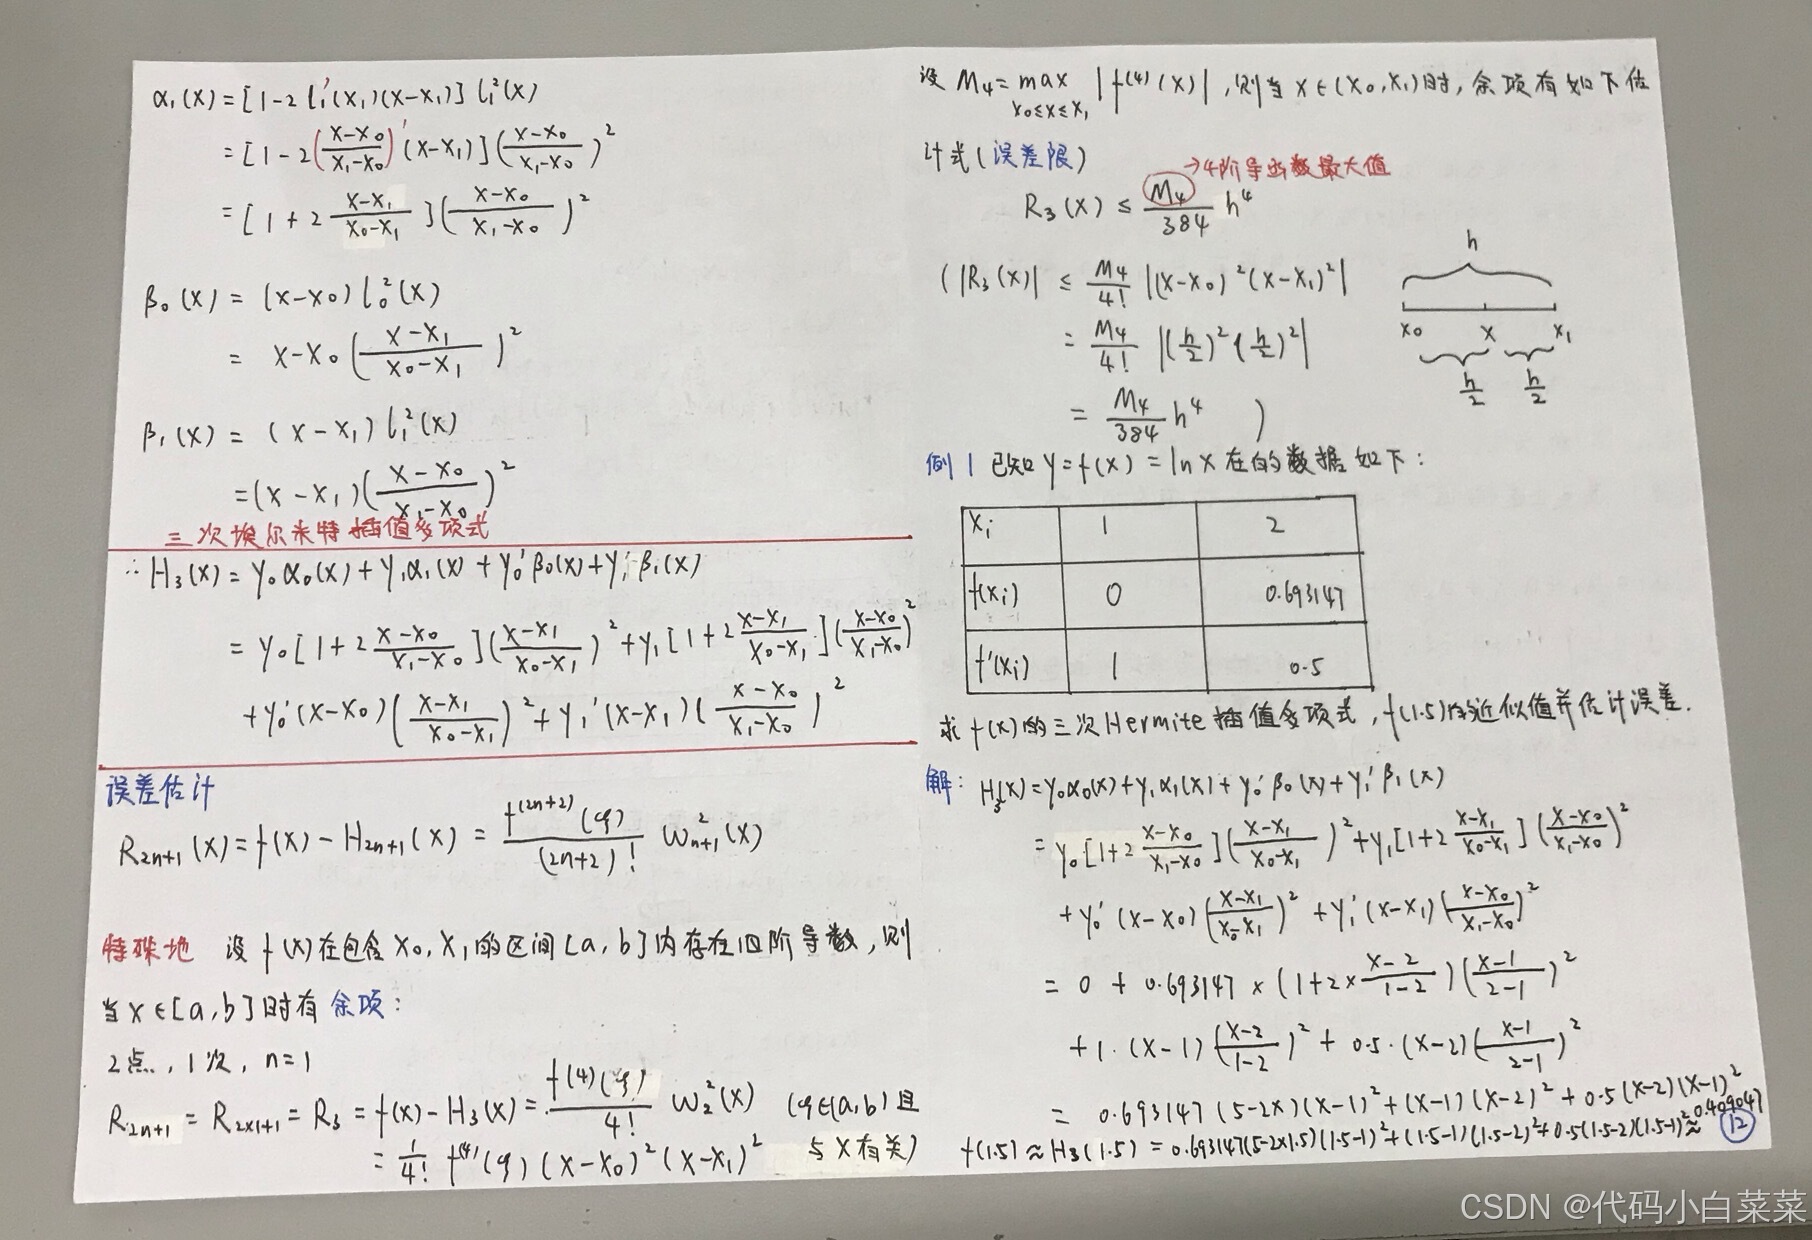 α₁(x) = [1-2 l₁'(x₁)(x-x₁)] l₁²(x)
= [1-2(\frac{x-x₀}{x₁-x₀})'(x-x₁)](\frac{x-x₀}{x₁-x₀})²
= [1+2\frac{x-x₁}{x₀-x₁}](\frac{x-x₀}{x₁-x₀})²
β₀(x) = (x-x₀) l₀²(x)
= x-x₀(\frac{x-x₁}{x₀-x₁})²
β₁(x) = (x-x₁) l₁²(x)
=(x-x₁)(\frac{x-x₀}{x₁-x₀})²
三次埃尔米特插值多项式
∴ H₃(x) = y₀α₀(x)+y₁α₁(x)+y₀'β₀(x)+y₁'β₁(x)
= y₀[1+2\frac{x-x₀}{x₁-x₀}](\frac{x-x₁}{x₀-x₁})²+y₁[1+2\frac{x-x₁}{x₀-x₁}](\frac{x-x₀}{x₁-x₀})²
+y₀'(x-x₀)(\frac{x-x₁}{x₀-x₁})²+y₁'(x-x₁)(\frac{x-x₀}{x₁-x₀})²
误差估计
R₂ₙ₊₁(x)=f(x)-H₂ₙ₊₁(x) = \frac{f^{(2n+2)}(ξ)}{(2n+2)!} ω²ₙ₊₁(x)
特殊地 设f(x)在包含x₀,x₁的区间[a,b]内存在四阶导数,则
当x∈[a,b]时有余项:
2点,1次,n=1
R₂ₙ₊₁ = R₂ₓ₁₊₁ = R₃ = f(x)-H₃(x) = \frac{f^{(4)}(ξ)}{4!} ω₂²(x) (ξ∈(a,b)且
= \frac{1}{4!} f⁽⁴⁾(ξ)(x-x₀)²(x-x₁)² 与x有关)
设 M₄ = max |f⁽⁴⁾(x)|,则当x∈(x₀,x₁)时,余项有如下估
x₀≤x≤x₁
计式(误差限)
→4阶导函数最大值
R₃(x) ≤ \frac{M₄}{384} h⁴
(|R₃(x)| ≤ \frac{M₄}{4!} |(x-x₀)²(x-x₁)²|
= \frac{M₄}{4!} |(\frac{h}{2})²(\frac{h}{2})²|
= \frac{M₄}{384} h⁴ )
h
x₀ x x₁
\frac{h}{2} \frac{h}{2}
例1 已知y=f(x)=lnx在的数据如下:
xᵢ 1 2
f(xᵢ) 0 0.693147
f'(xᵢ) 1 0.5
求f(x)的三次Hermite插值多项式,f(1.5)的近似值并估计误差.
解: H₃(x)=y₀α₀(x)+y₁α₁(x)+y₀'β₀(x)+y₁'β₁(x)
= y₀[1+2\frac{x-x₀}{x₁-x₀}](\frac{x-x₁}{x₀-x₁})²+y₁[1+2\frac{x-x₁}{x₀-x₁}](\frac{x-x₀}{x₁-x₀})²
+y₀'(x-x₀)(\frac{x-x₁}{x₀-x₁})²+y₁'(x-x₁)(\frac{x-x₀}{x₁-x₀})²
= 0 + 0.693147×(1+2×\frac{x-2}{1-2})(\frac{x-1}{2-1})²
+1·(x-1)(\frac{x-2}{1-2})²+0.5·(x-2)(\frac{x-1}{2-1})²
= 0.693147(5-2x)(x-1)²+(x-1)(x-2)²+0.5(x-2)(x-1)²
f(1.5)≈H₃(1.5) = 0.693147(5-2×1.5)(1.5-1)²+(1.5-1)(1.5-2)²+0.5(1.5-2)(1.5-1)²≈0.409047
12
CSDN @代码小白菜菜